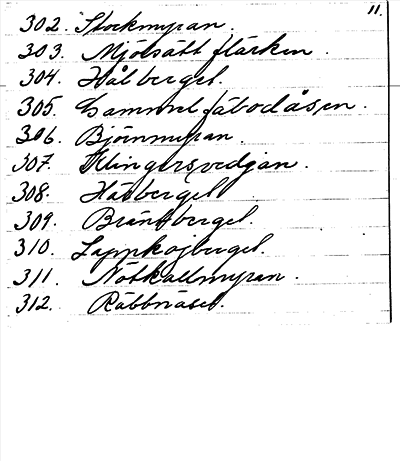 11.
302. Stockmyran.
303. Mjölsätt flärken.
304. Hålberget.
305. Gammelfäbodåsen.
306. Björnmyran.
307. Klingersvedjan.
308. Håberget
309. Bräntberget.
310. Lappkojberget.
311. Nötkallmyran.
312. Räbbnäset.